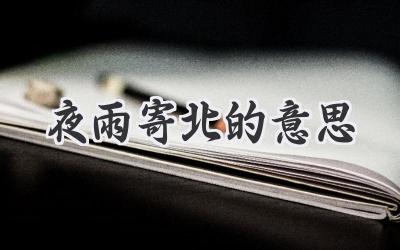 夜雨寄北的意思